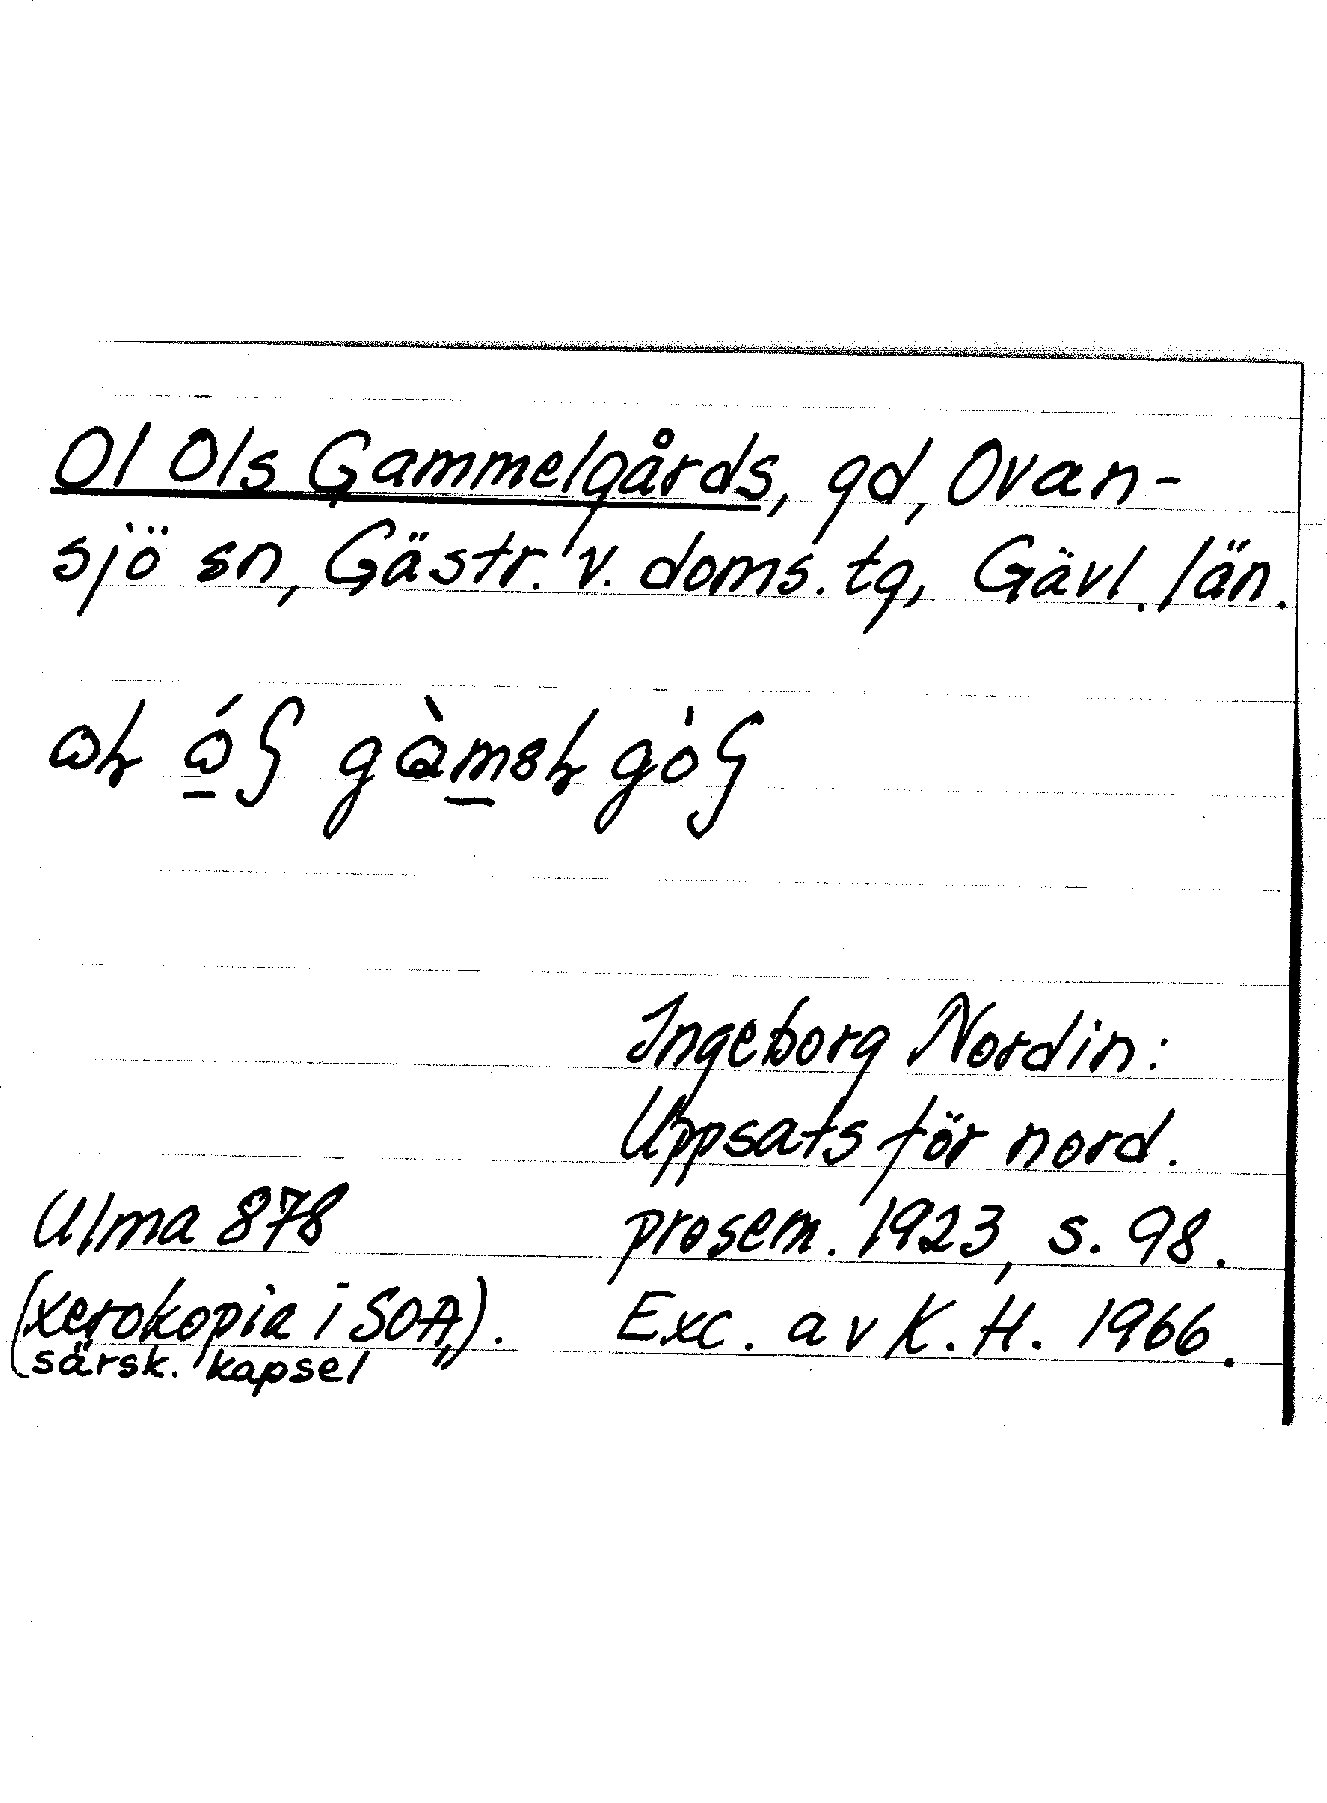 Ol Ols Gammelgårds, gd, Ovan-
sjö sn, Gästr. v. doms. tg, Gävl. län.
Ingeborg Nordin:
Uppsats för nord.
Ulma 878 prosem. 1923, s. 98.
(xerokopia i SOA,,). Exc. av K. H. 1966.
särsk. kapsel